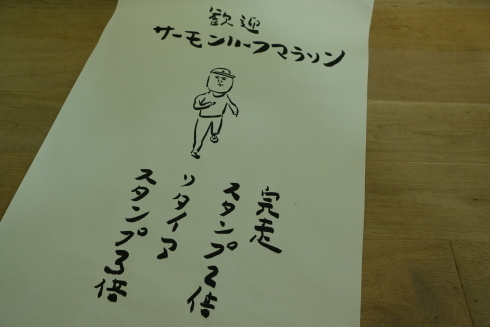 歓迎
サーモンハーフマラソン
完走
スタンプ2倍
リタイア
スタンプ3倍